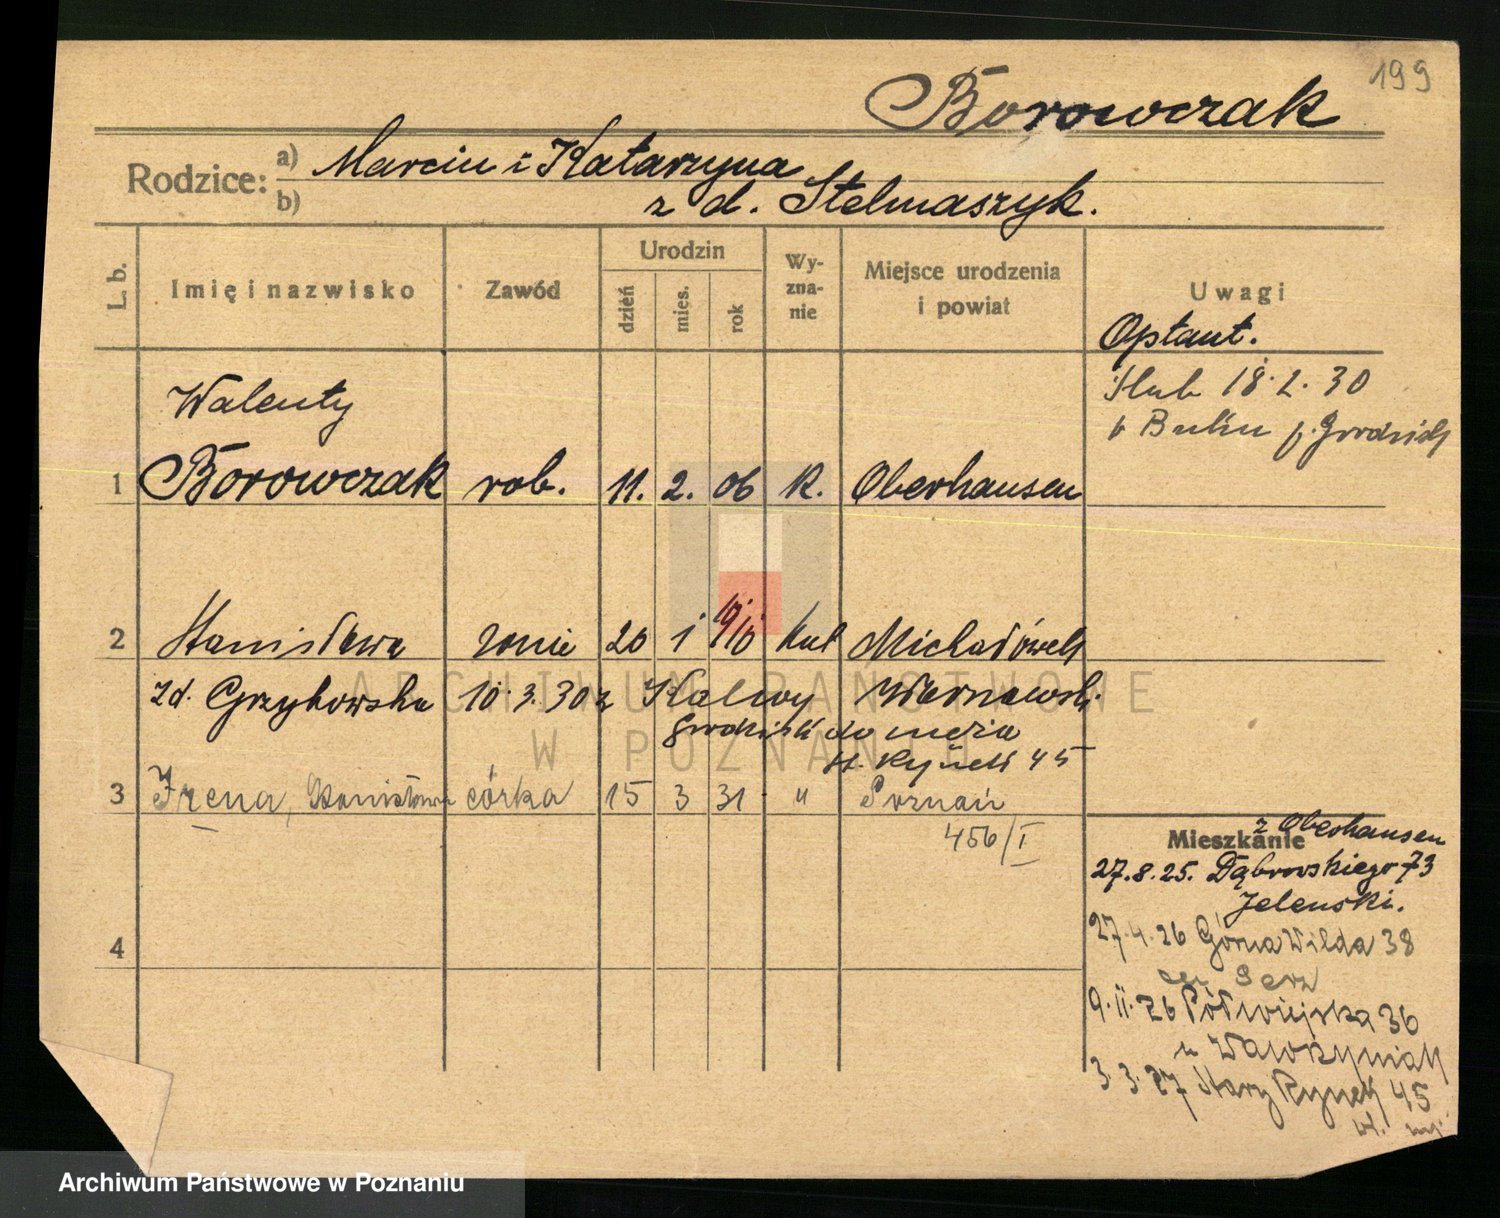 199
Borowczak
Rodzice: a) Marcin i Katarzyna
b) z d. Stelmaszyk.
L. b.
Imię i nazwisko
Zawód
Urodzin
dzień
mies.
rok
Wy-
zna-
nie
Miejsce urodzenia
i powiat
Uwagi
Optant.
Ślub 18.2.30
w Buku p. Grodzisk
Walenty
1 Borowczak rob. 11. 2. 06 k. Oberhausen
2 Stanisława żonie 20 1 kat Michałówek
zd. Grzybowska 10.3.30 z Kalwy
Grodzisk do męża
St. Rynek 45
3 Irena, Stanisława córka 15 3 31 " Poznań
456/I
4
Mieszkanie
z Oberhausen
27.8.25. Dąbrowskiego 73
Jelenski.
27.4.26 Górna Wilda 38
9.11.26 Półwiejska 36
u Wawrzyniak
3.3.27 Stary Rynek 45
ARCHIWUM PAŃSTWOWE
W POZNANIU
Archiwum Państwowe w Poznaniu